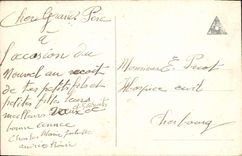 Cher Grand Père
à
l'occasion du
Nouvel an reçoit
de tes petits fils et
petites filles leurs
meilleurs vœux et
bonne année
Charles Marie Juliette
andrée
Monsieur E. Picot
Hospice civil
Cherbourg